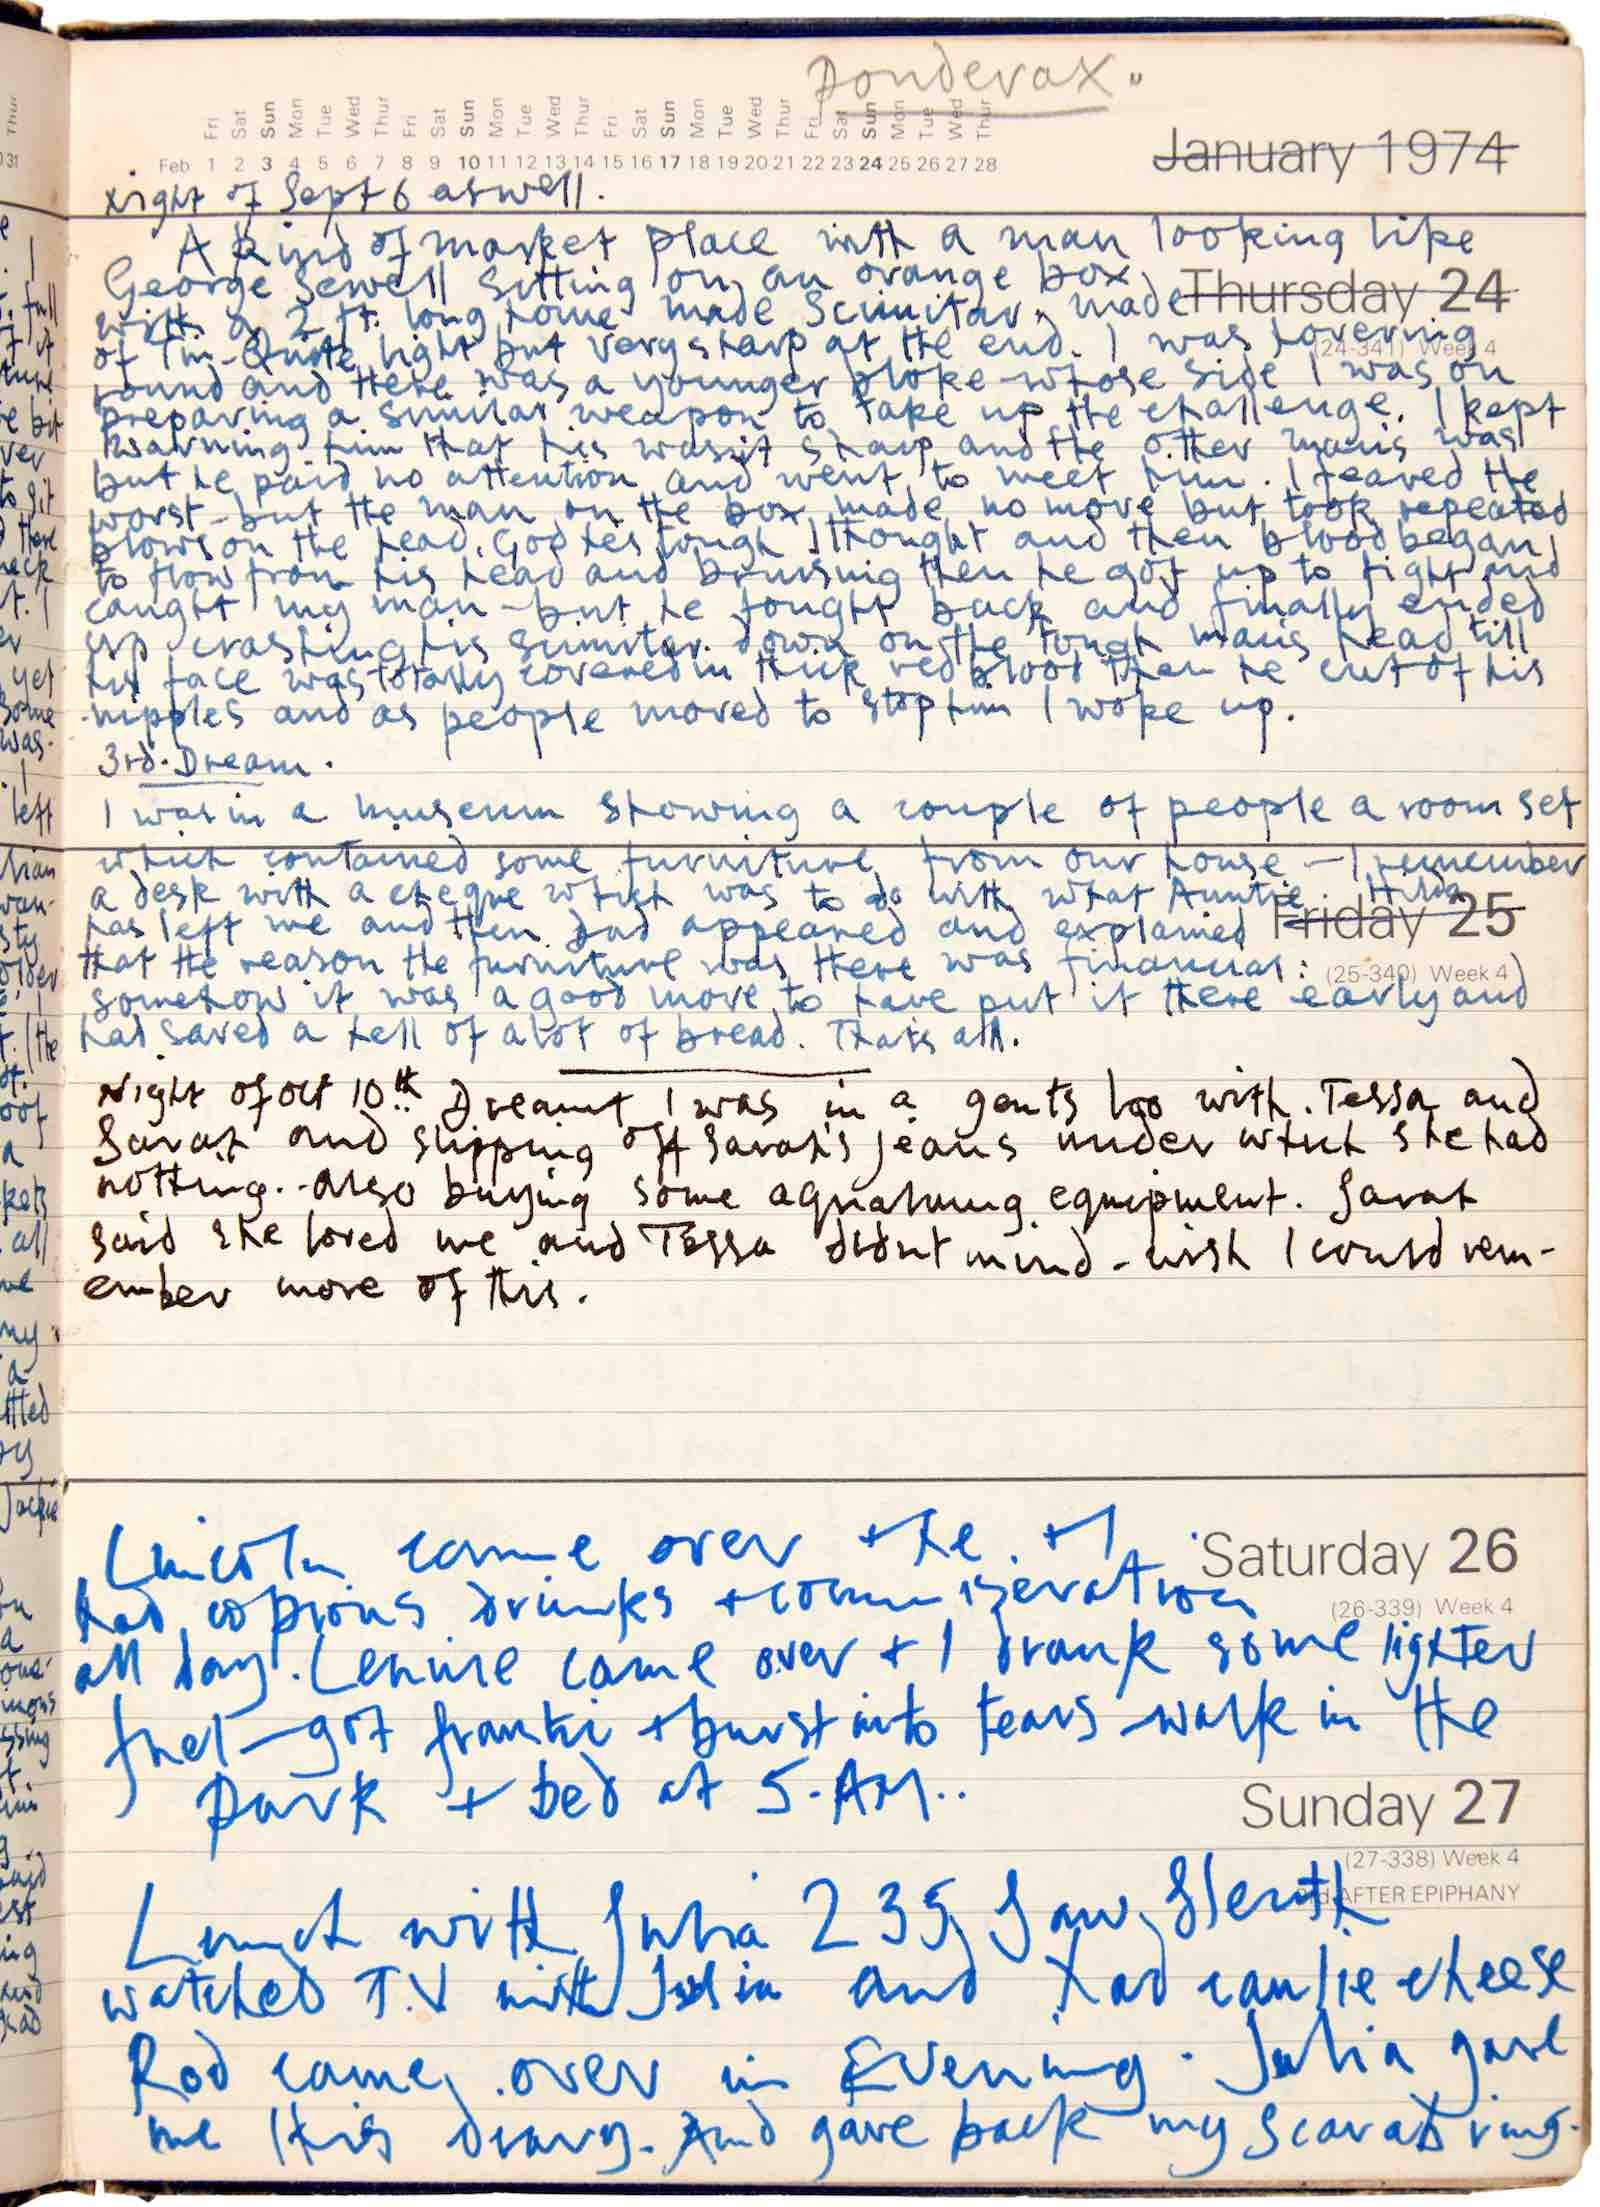 Ponderax"
Fri Sat Sun Mon Tue Wed Thur Fri Sat Sun Mon Tue Wed Thur Fri Sat Sun Mon Tue Wed Thur Fri Sat Sun Mon Tue Wed Thur
Feb 1 2 3 4 5 6 7 8 9 10 11 12 13 14 15 16 17 18 19 20 21 22 23 24 25 26 27 28
January 1974
Night of Sept 6 aswell.
A kind of market place with a man looking like
George Sewell sitting on an orange box
Thursday 24
with a 2 ft. long home made Scimitar, made
of Tin-Quite light but very sharp at the end. I was hovering
(24-341) Week 4
round and there was a younger bloke whose side I was on
preparing a similar weapon to take up the challenge. I kept
warning him that his wasn't sharp and the other man's was
but he paid no attention and went to meet him. I feared the
worst-but the man on the box made no move but took repeated
blows on the head. God hes tough I thought and then blood began
to flow from his head and bruising then he got up to fight and
caught my man-but he fought back and finally ended
up crashing his scimitar down on the tough man's head till
his face was totally covered in thick red blood then he cut of his
nipples and as people moved to stop him I woke up.
3rd. Dream.
I was in a museum showing a couple of people a room set
which contained some furniture from our house - I remember
a desk with a cheque which was to do with what Auntie Hilda
Friday 25
has left me and then Dad appeared and explained
that the reason the furniture was there was financial:
(25-340) Week 4
somehow it was a good move to have put it there early and
had saved a hell of alot of bread. Thats all.
Night of Oct 10th Dreamt I was in a gents loo with. Tessa and
Sarah and slipping off Sarah's jeans under which she had
nothing.-also buying some aqualung equipment. Sarah
said she loved me and Tessa didnt mind-wish I could rem-
ember more of this.
Lincoln came over the. + I
Saturday 26
had copious drinks + commiseration
(26-339) Week 4
all day. Lennie came over + I drank some lighter
fuel-got frantic + burst into tears-walk in the
park + bed at 5.AM..
Sunday 27
(27-338) Week 4
AFTER EPIPHANY
Lunch with Julia 235 Saw Sleuth
watched T.V with Julia and had caulie cheese
Rod came over in Evening. Julia gave
me this diary. And gave back my scarab ring.